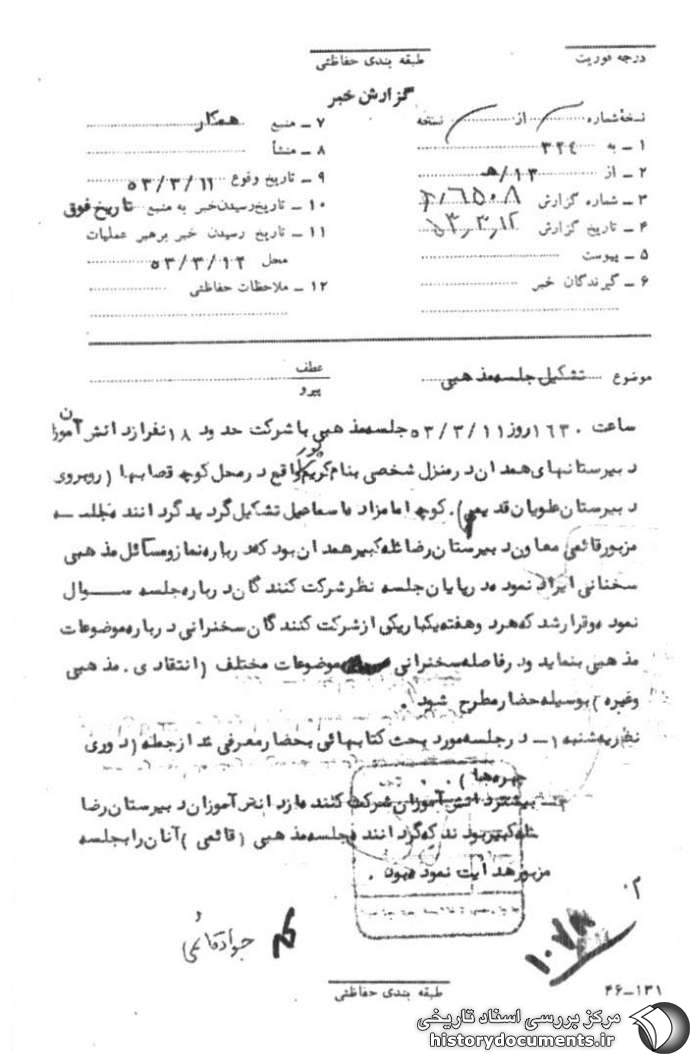 درجه فوریت
طبقه بندی حفاظتی
گزارش خبر
نسخهٔ شماره از نسخه
۱ ــ به ۳۲۴
۲ ــ از ۱۲/ﻫ
۳ ــ شماره گزارش
۴ ــ تاریخ گزارش ۵۳٫۳٫۱۲
۵ ــ پیوست
۶ ــ گیرندگان خبر
۷ ــ منبع همکار
۸ ــ منشأ
۹ ــ تاریخ وقوع ۵۳/۳/۱۱
۱۰ ــ تاریخ رسیدن خبر به منبع تاریخ فوق
۱۱ ــ تاریخ رسیدن خبر برهبر عملیات
محل ۵۳/۳/۱۲
۱۲ ــ ملاحظات حفاظتی
موضوع تشکیل جلسه مذهبی
عطف
پیرو
ساعت ۱۶۳۰ روز ۵۳/۳/۱۱ جلسه مذهبی با شرکت حدود ۱۸ نفر از دانش آموزان
دبیرستانهای همدان در منزل شخصی بنام کریم پور واقع در محل کوچه قصابها (روبروی
دبیرستان علویان قدیمی). کوچه امامزاده اسماعیل تشکیل گردید گرداننده جلسه
مزبور قائمی معاون دبیرستان رضا شاه کبیر همدان بود که درباره نماز و مسائل مذهبی
سخنانی ایراد نموده در پایان جلسه نظر شرکت کنندگان درباره جلسه سوال
نموده و قرار شد که هر دو هفته یکبار یکی از شرکت کنندگان سخنرانی درباره موضوعات
مذهبی بنماید و در فاصله سخنرانی موضوعات مختلف (انتقادی. مذهبی
وغیره) بوسیله حضار مطرح شود.
نظریه شنبه ۱ــ در جلسه مورد بحث کتابهائی بحضار معرفی شد از جمله (داوری
چهره‌ها)
۲ــ بیشتر دانش آموزان شرکت کننده از دانش آموزان دبیرستان رضا
شاه کبیر بودند که گرداننده جلسه مذهبی (قائمی) آنان را بجلسه
مزبور هدایت نموده بود.
جواد قائمی
۱۰۷۸
۴۶-۱۳۱
طبقه بندی حفاظتی
مرکز بررسی اسناد تاریخی
historydocuments.ir